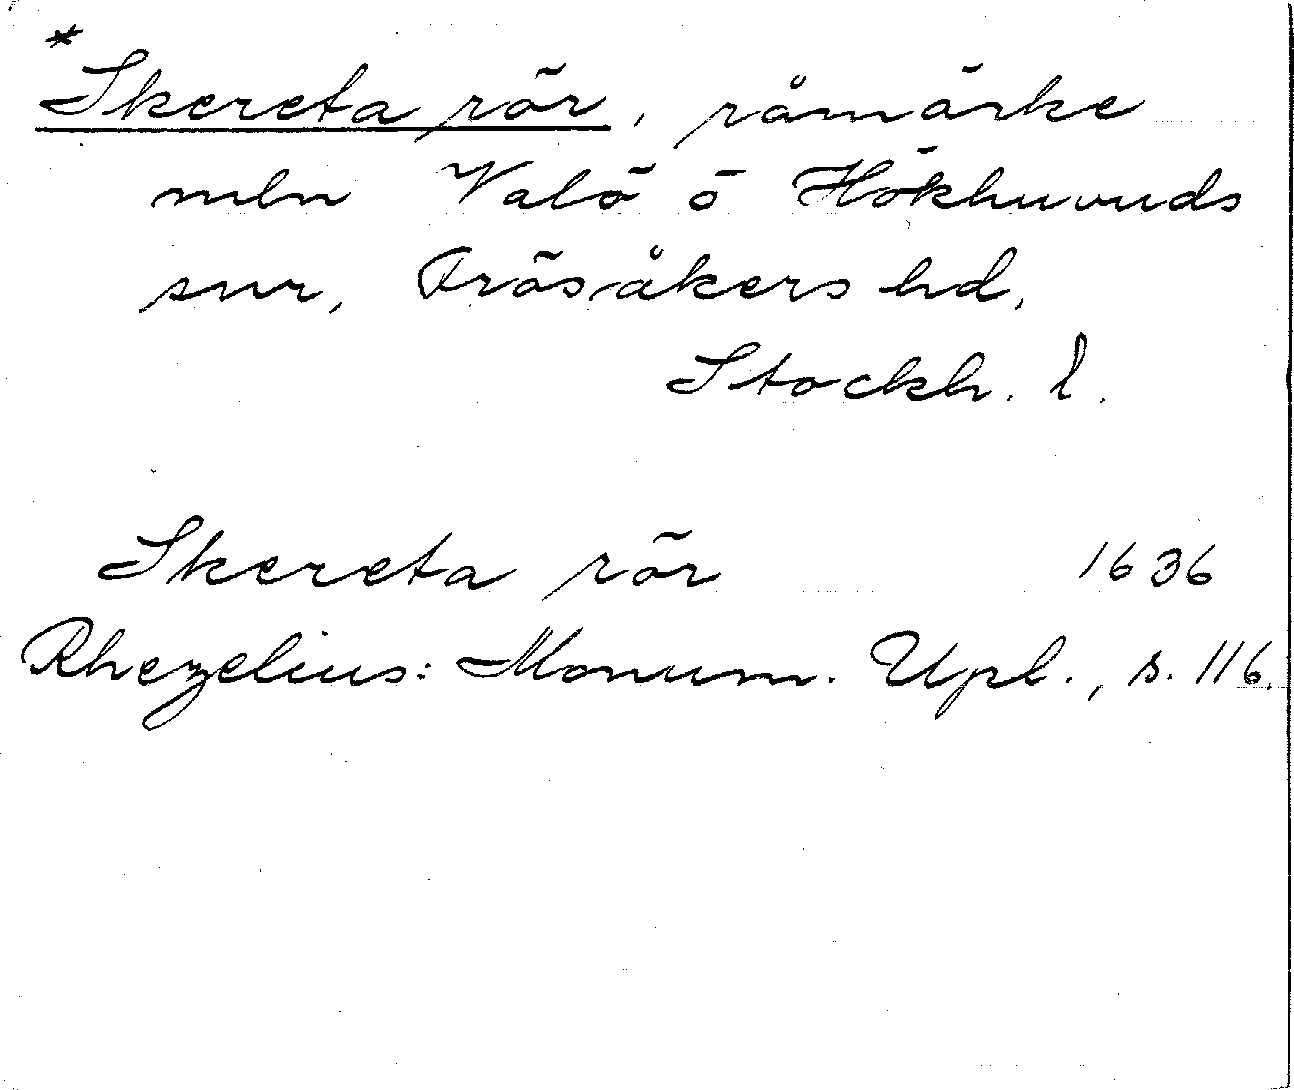 *Skereta rör, råmärke
mln Valö ö Hökhuvuds
snr, Frösåkers hd,
Stockh. l.
Skereta rör 1636
Rhezelius: Monum. Upl., s. 116.